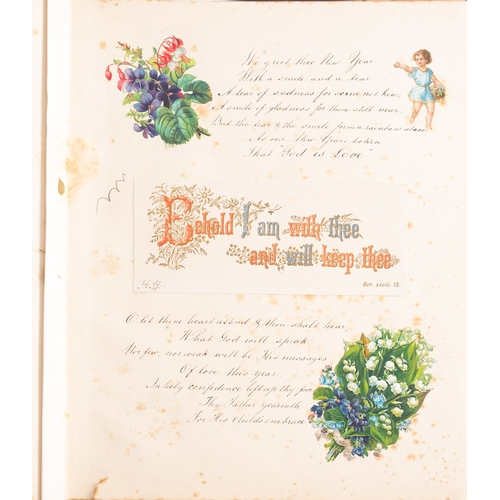 We greet thee New Year
With a smile and a tear
A tear of sadness for some not here,
A smile of gladness for those still near.
But the tear & the smile form a rainbow above
As our New Years token
That "God is Love"
Behold I am with thee
and will keep thee
Gen. xxviii. 15.
O let thine heart attend & thou shalt hear,
What God will speak
Nor few nor weak will be His messages
Of love this year.
In holy confidence lift up thy
Thy Father yearneth
For His Childs embrace